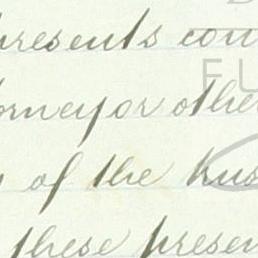 presents con
orney or othe
of the hus
these presen